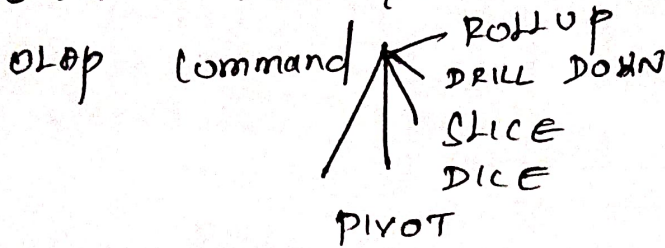 OLAP Command
ROLLUP
DRILL DOWN
SLICE
DICE
PIVOT